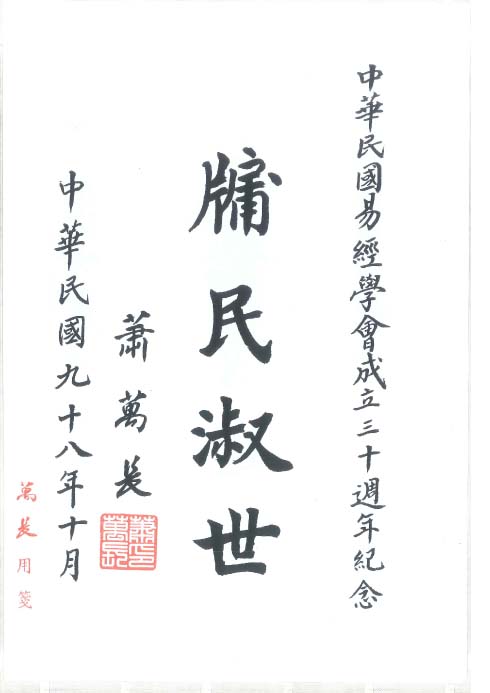 中華民國易經學會成立三十週年紀念
牖民淑世
蕭萬長
蕭萬長印
中華民國九十八年十月
萬長用箋